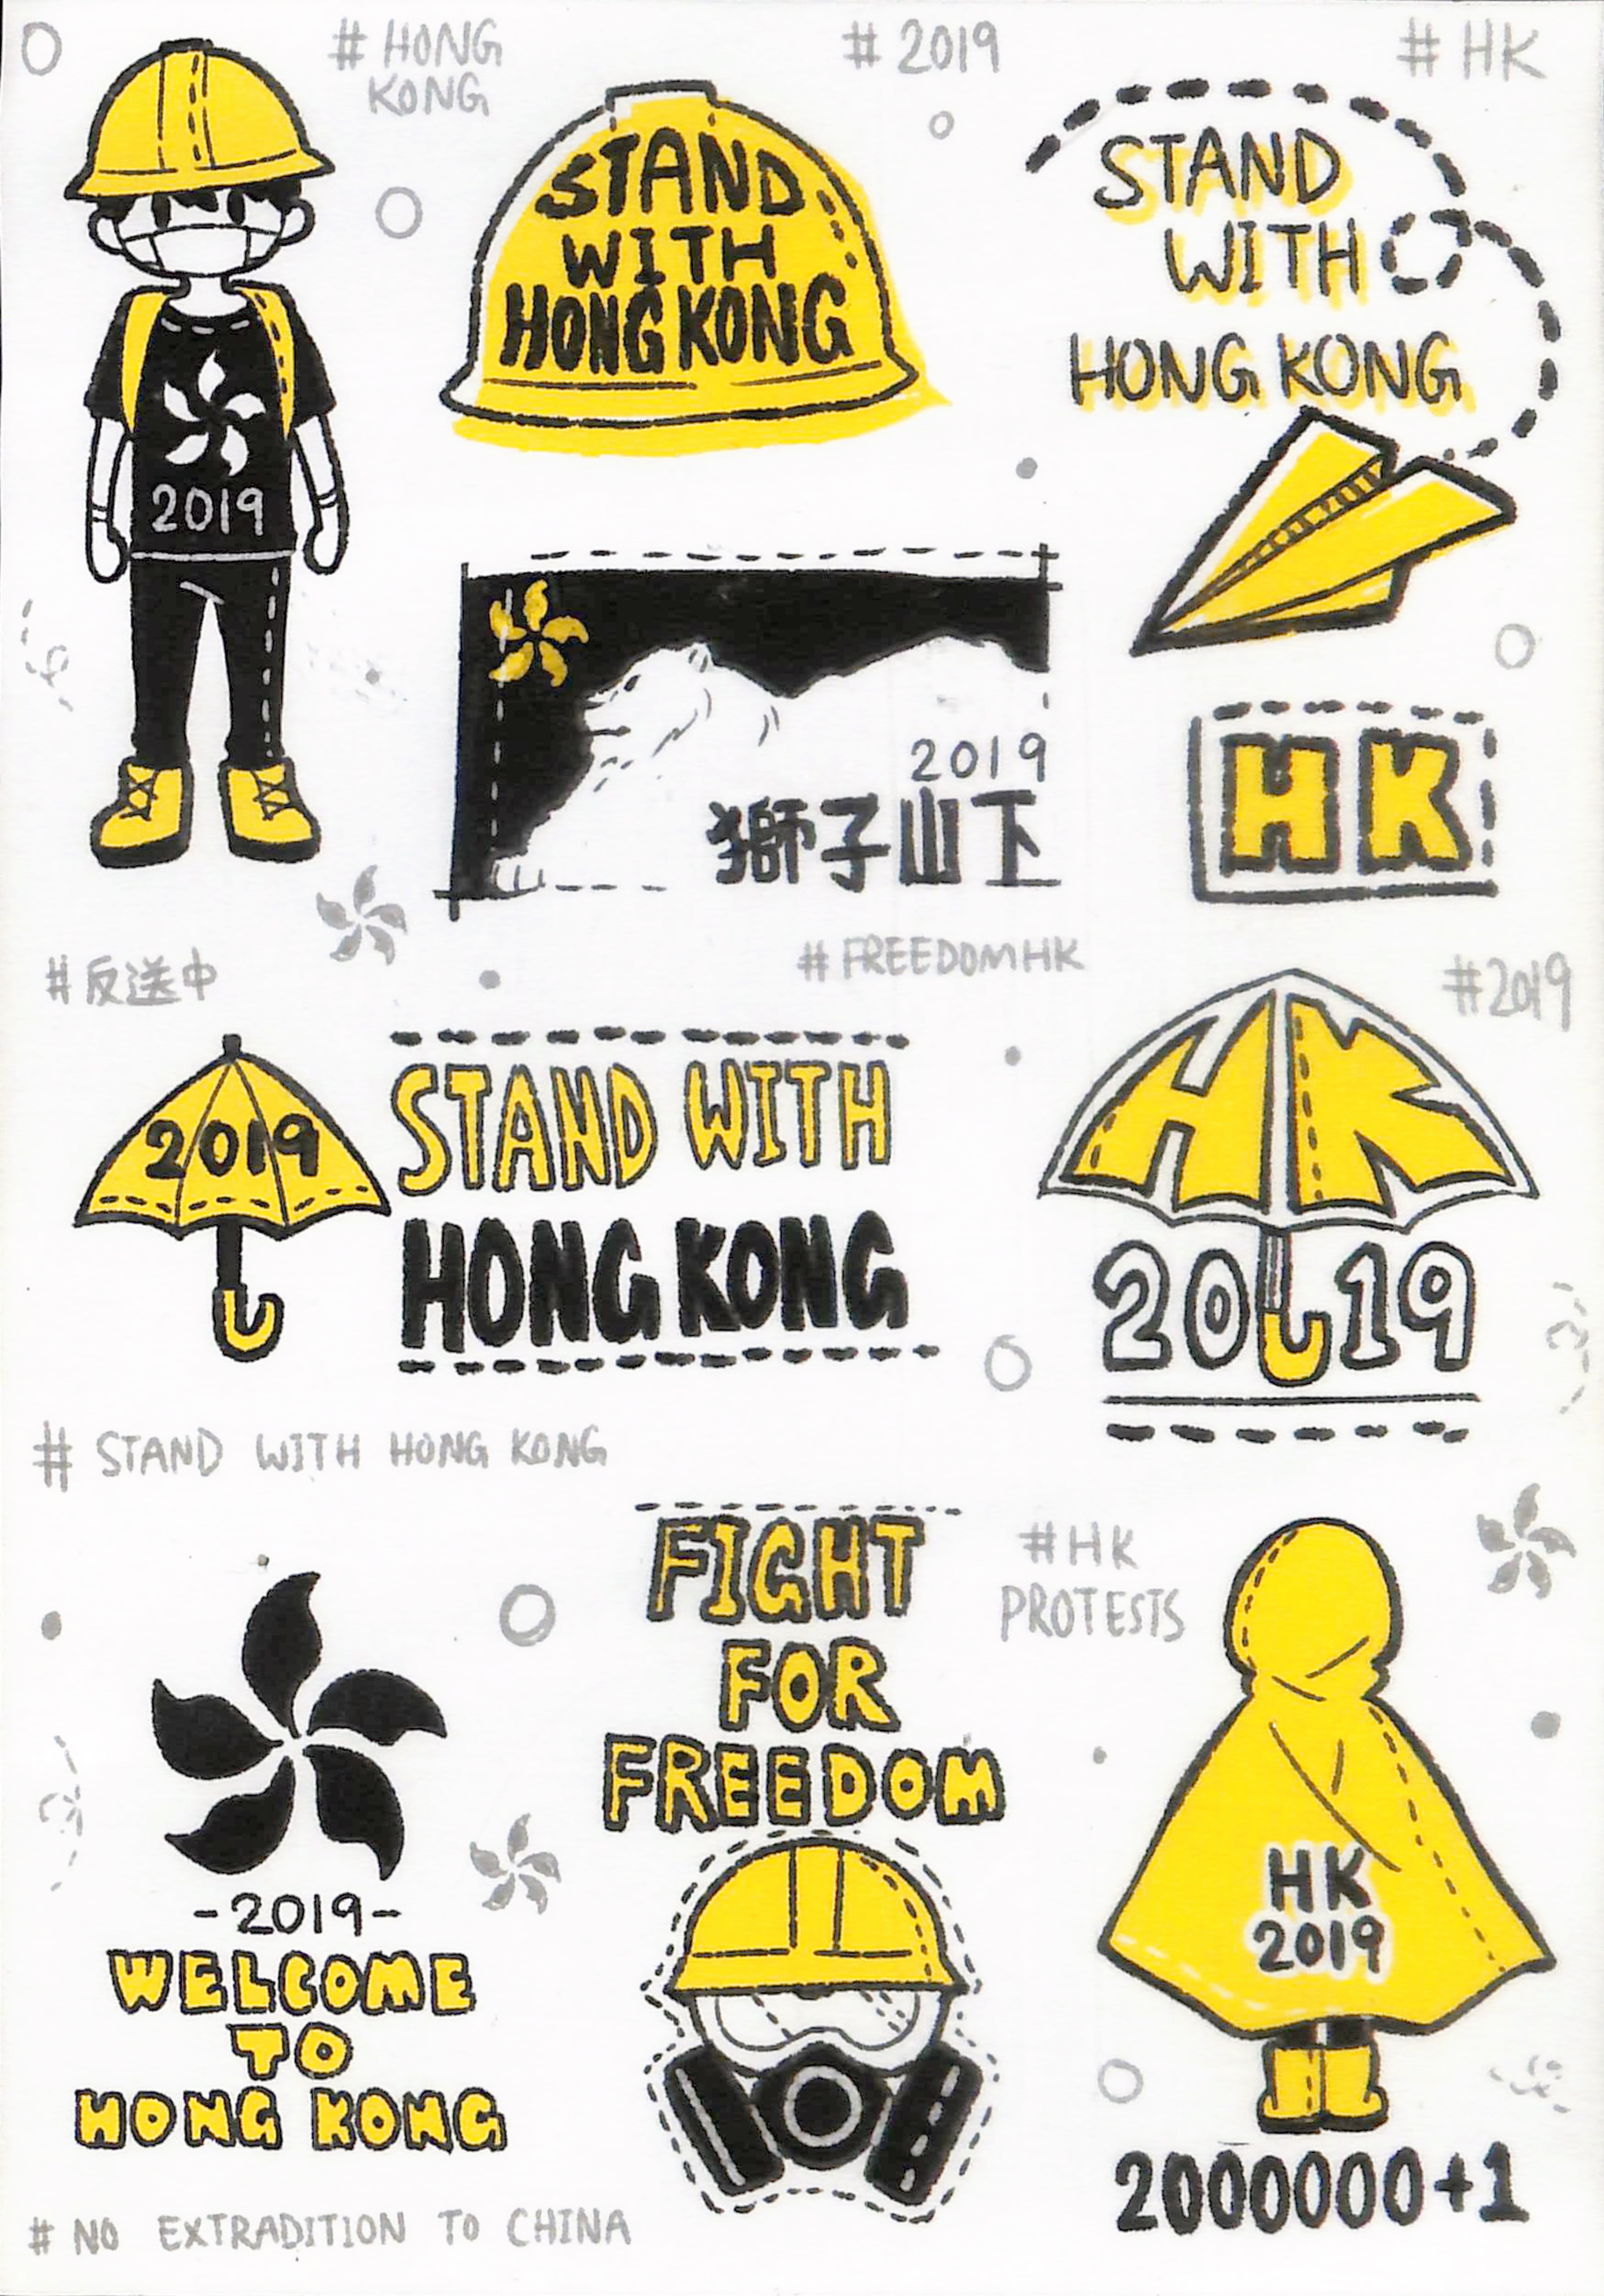 # HONG
KONG
# 2019
# HK
STAND
WITH
HONG KONG
STAND
WITH
HONG KONG
2019
2019
獅子山下
HK
#反送中
# FREEDOMHK
#2019
2019
STAND WITH
HONG KONG
HK
2019
# STAND WITH HONG KONG
FIGHT
FOR
FREEDOM
#HK
PROTESTS
-2019-
WELCOME
TO
HONG KONG
HK
2019
2000000+1
# NO EXTRADITION TO CHINA